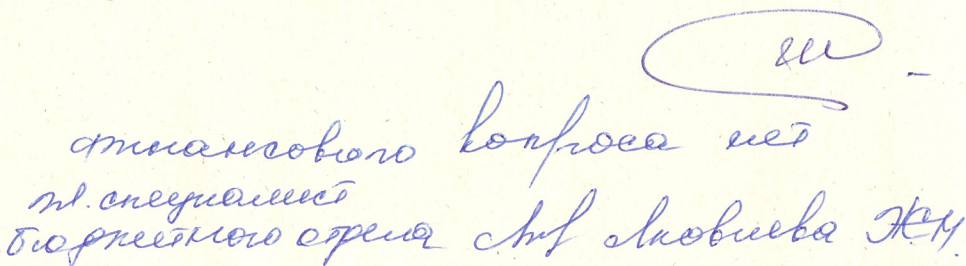 финансового вопроса нет
гл. специалист
бюджетного отдела Яковлева Ж.М.